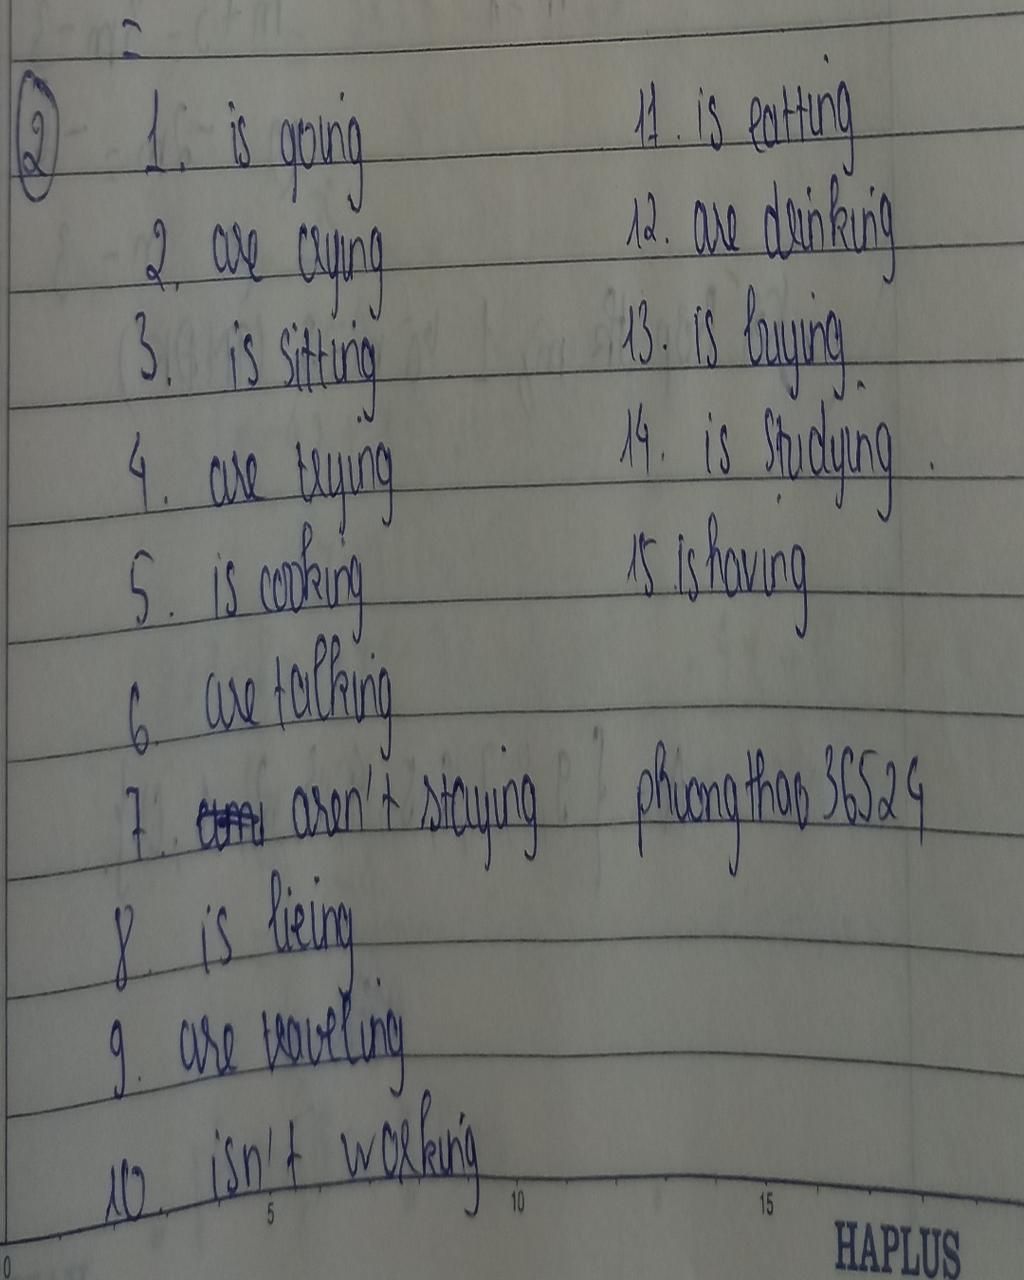 =
2
1. is going
2. are crying
3. is sitting
4. are trying
5. is cooking
6. are talking
7. aren't staying
8. is lieing
9. are traveling
10. isn't working
11. is eatting
12. are drinking
13. is buying
14. is studying.
15 is having
phuongthao36524
0 5 10 15
HAPLUS